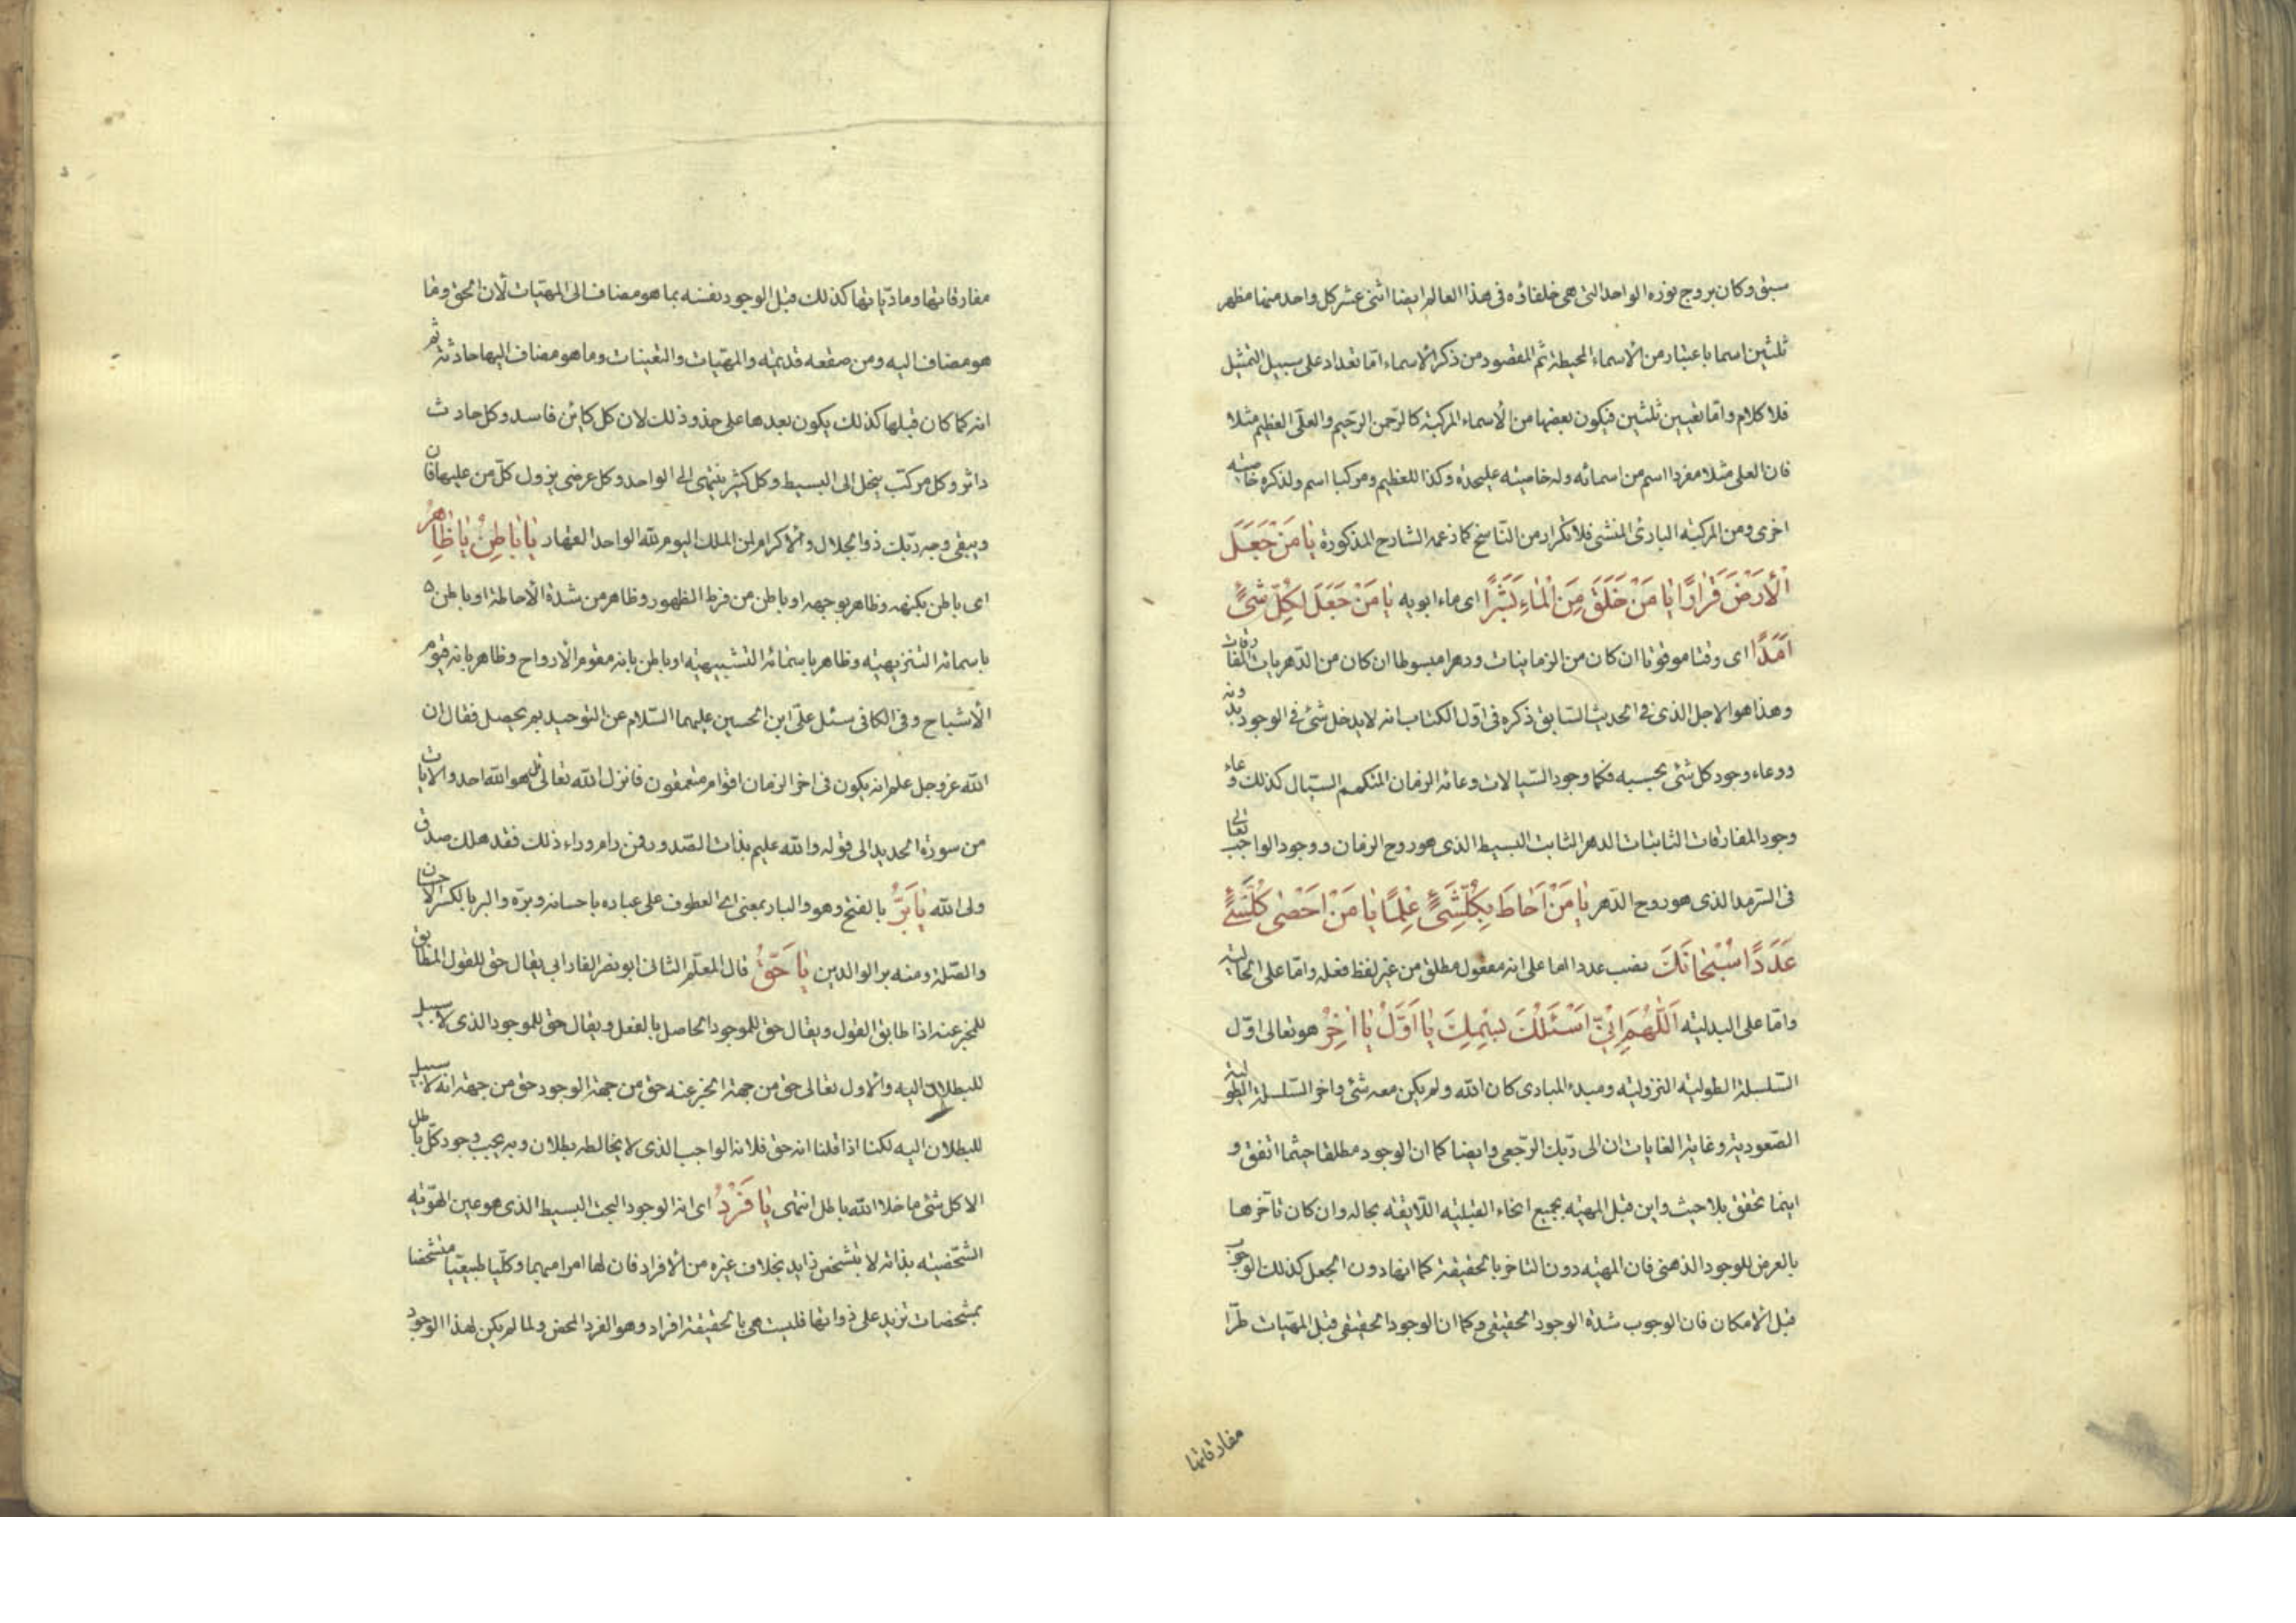 سبق وكان بروج نوره الواحد التى هى خلفاؤه فى هذا العالم ايضا اثنى عشر كل واحد منها مظهر
ثلثين اسما باعتبار من الأسماء المحيطة ثم المقصود من ذكر الاسماء اما تعداد على سبيل التمثيل
فلا كلام واما تعيين ثلثين فيكون بعضها من الأسماء المركبة كالرحمن الرحيم والعلى العظيم مثلا
فان العلى مثلا مفردا اسم من اسمائه وله خاصيته عليحدة وكذا للعظيم ومركبا اسم ولذكره خاصيته
اخرى ومن المركبة البارئ المنشى فلا تكرار من الناسخ كما زعمه الشارح المذكورة يَا مَنْ جَعَلَ
الْأَرْضَ قَرَارًا يَا مَنْ خَلَقَ مِنَ الْمَاءِ بَشَرًا اى ماء ابويه يَا مَنْ جَعَلَ لِكُلِّ شَيْءٍ
اَمَدًا اى وقتا موقوتا ان كان من الزمانيات ودهرا مبسوطا ان كان من الدهريات المفارقات
وهذا هو الاجل الذى فى الحديث السابق ذكره فى اول الكتاب انه لا يدخل شئ فى الوجود بدونه
ووعاء وجود كل شئ بحسبه فكما وجود السيالات وعائه الزمان المتكمم السيال كذلك وعاء
وجود المفارقات الثابتات الدهر الثابت البسيط الذى هو روح الزمان ووجود الواجب تعالى
فى السرمد الذى هو روح الدهر يَا مَنْ اَحَاطَ بِكُلِّ شَيْءٍ عِلْمًا يَا مَنْ اَحْصٰى كُلَّ شَيْءٍ
عَدَدًا سُبْحَانَكَ نصب عددا اما على انه مفعول مطلق من غير لفظ فعله واما على الحالية
واما على البدلية اَللّٰهُمَّ اِنِّي اَسْئَلُكَ بِاسْمِكَ يَا اَوَّلُ يَا اٰخِرُ هو تعالى اول
السلسلة الطولية النزولية ومبدء المبادى كان الله ولم يكن معه شئ واخر السلسلة الطولية
الصعودية وغاية الغايات ان الى ربك الرجعى وايضا كما ان الوجود مطلقا حيثما اتفق و
اينما تحقق بلا حيث واين قبل المهية بجميع انحاء القبلية اللايقة بحاله وان كان تأخرها
بالعرض للوجود الذهنى فان المهية دون التاخر بالحقيقة كما انها دون الجعل كذلك الوجوب
قبل الامكان فان الوجوب شدة الوجود الحقيقى وكما ان الوجود الحقيقى قبل المهيات طرا
مفارقاتها
مفارقاتها ومادياتها كذلك قبل الوجود نفسه بما هو مضاف الى المهيات لأن الحق وما
هو مضاف اليه ومن صقعه قديمة والمهيات والتعينات وما هو مضاف اليها حادثة ثم
انه كما كان قبلها كذلك يكون بعدها على حذو ذلك لان كل كاين فاسد وكل حادث
داثر وكل مركب ينحل الى البسيط وكل كثير ينتهى الى الواحد وكل عرضى يزول كل من عليها فان
ويبقى وجه ربك ذو الجلال والأكرام لمن الملك اليوم لله الواحد القهار يَا بَاطِنُ يَا ظَاهِرُ
اى باطن بكنهه وظاهر بوجهه او باطن من فرط الظهور وظاهر من شدة الأحاطة او باطن
باسمائه التنزيهية وظاهر باسمائه التشبيهية او باطن بانه مقوم الأرواح وظاهر بانه قيوم
الأشباح وفى الكافى سئل على ابن الحسين عليهما السلام عن التوحيد بم يحصل فقال ان
الله عز وجل علم انه يكون فى اخر الزمان اقوام متعمقون فانزل الله تعالى قل هو الله احد والايات
من سورة الحديد الى قوله والله عليم بذات الصدور فمن رام وراء ذلك فقد هلك صدق
ولى الله يَا بَرُّ بالفتح وهو والبار بمعنى اى العطوف على عباده باحسانه وبره والبر بالكسر الاحسان
والصلة ومنه بر الوالدين يَا حَقُّ قال المعلم الثانى ابو نصر الفارابى يقال حق للقول المطابق
للمخبر عنه اذا طابق القول ويقال حق للموجود الحاصل بالفعل ويقال حق للموجود الذى لا سبيل
للبطلان اليه والاول تعالى حق من جهة المخبر عنه حق من جهة الوجود حق من جهة انه لا سبيل
للبطلان اليه لكنا اذا قلنا انه حق فلانه الواجب الذى لا يخالطه بطلان وبه يجب وجود كل باطل
الا كل شئ ما خلا الله باطل انتهى يَا فَرْدُ اى انه الوجود البحت البسيط الذى هو عين الهوية
الشخصية بذاته لا بتشخص زايد بخلاف غيره من الأفراد فان لها امرا مبهما وكليا طبيعيا متشخصا
بمشخصات تزيد على ذواتها فليست هى بالحقيقة افراد وهو الفرد المحض ولما لم يكن لهذا الوجود